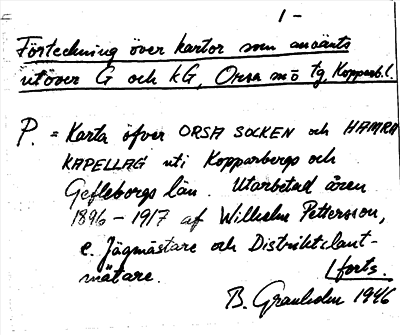 1 -
Förteckning över kartor som använts
utöver G och kG, Orsa mö tg, Kopparb. l.
P. = Karta öfver ORSA SOCKEN och HAMRA
KAPELLAG uti Kopparbergs och
Gefleborgs län. Utarbetad åren
1896 - 1917 af Wilhelm Pettersson,
e. Jägmästare och Distriktslant-
mätare.
/forts.
B. Granholm 1946